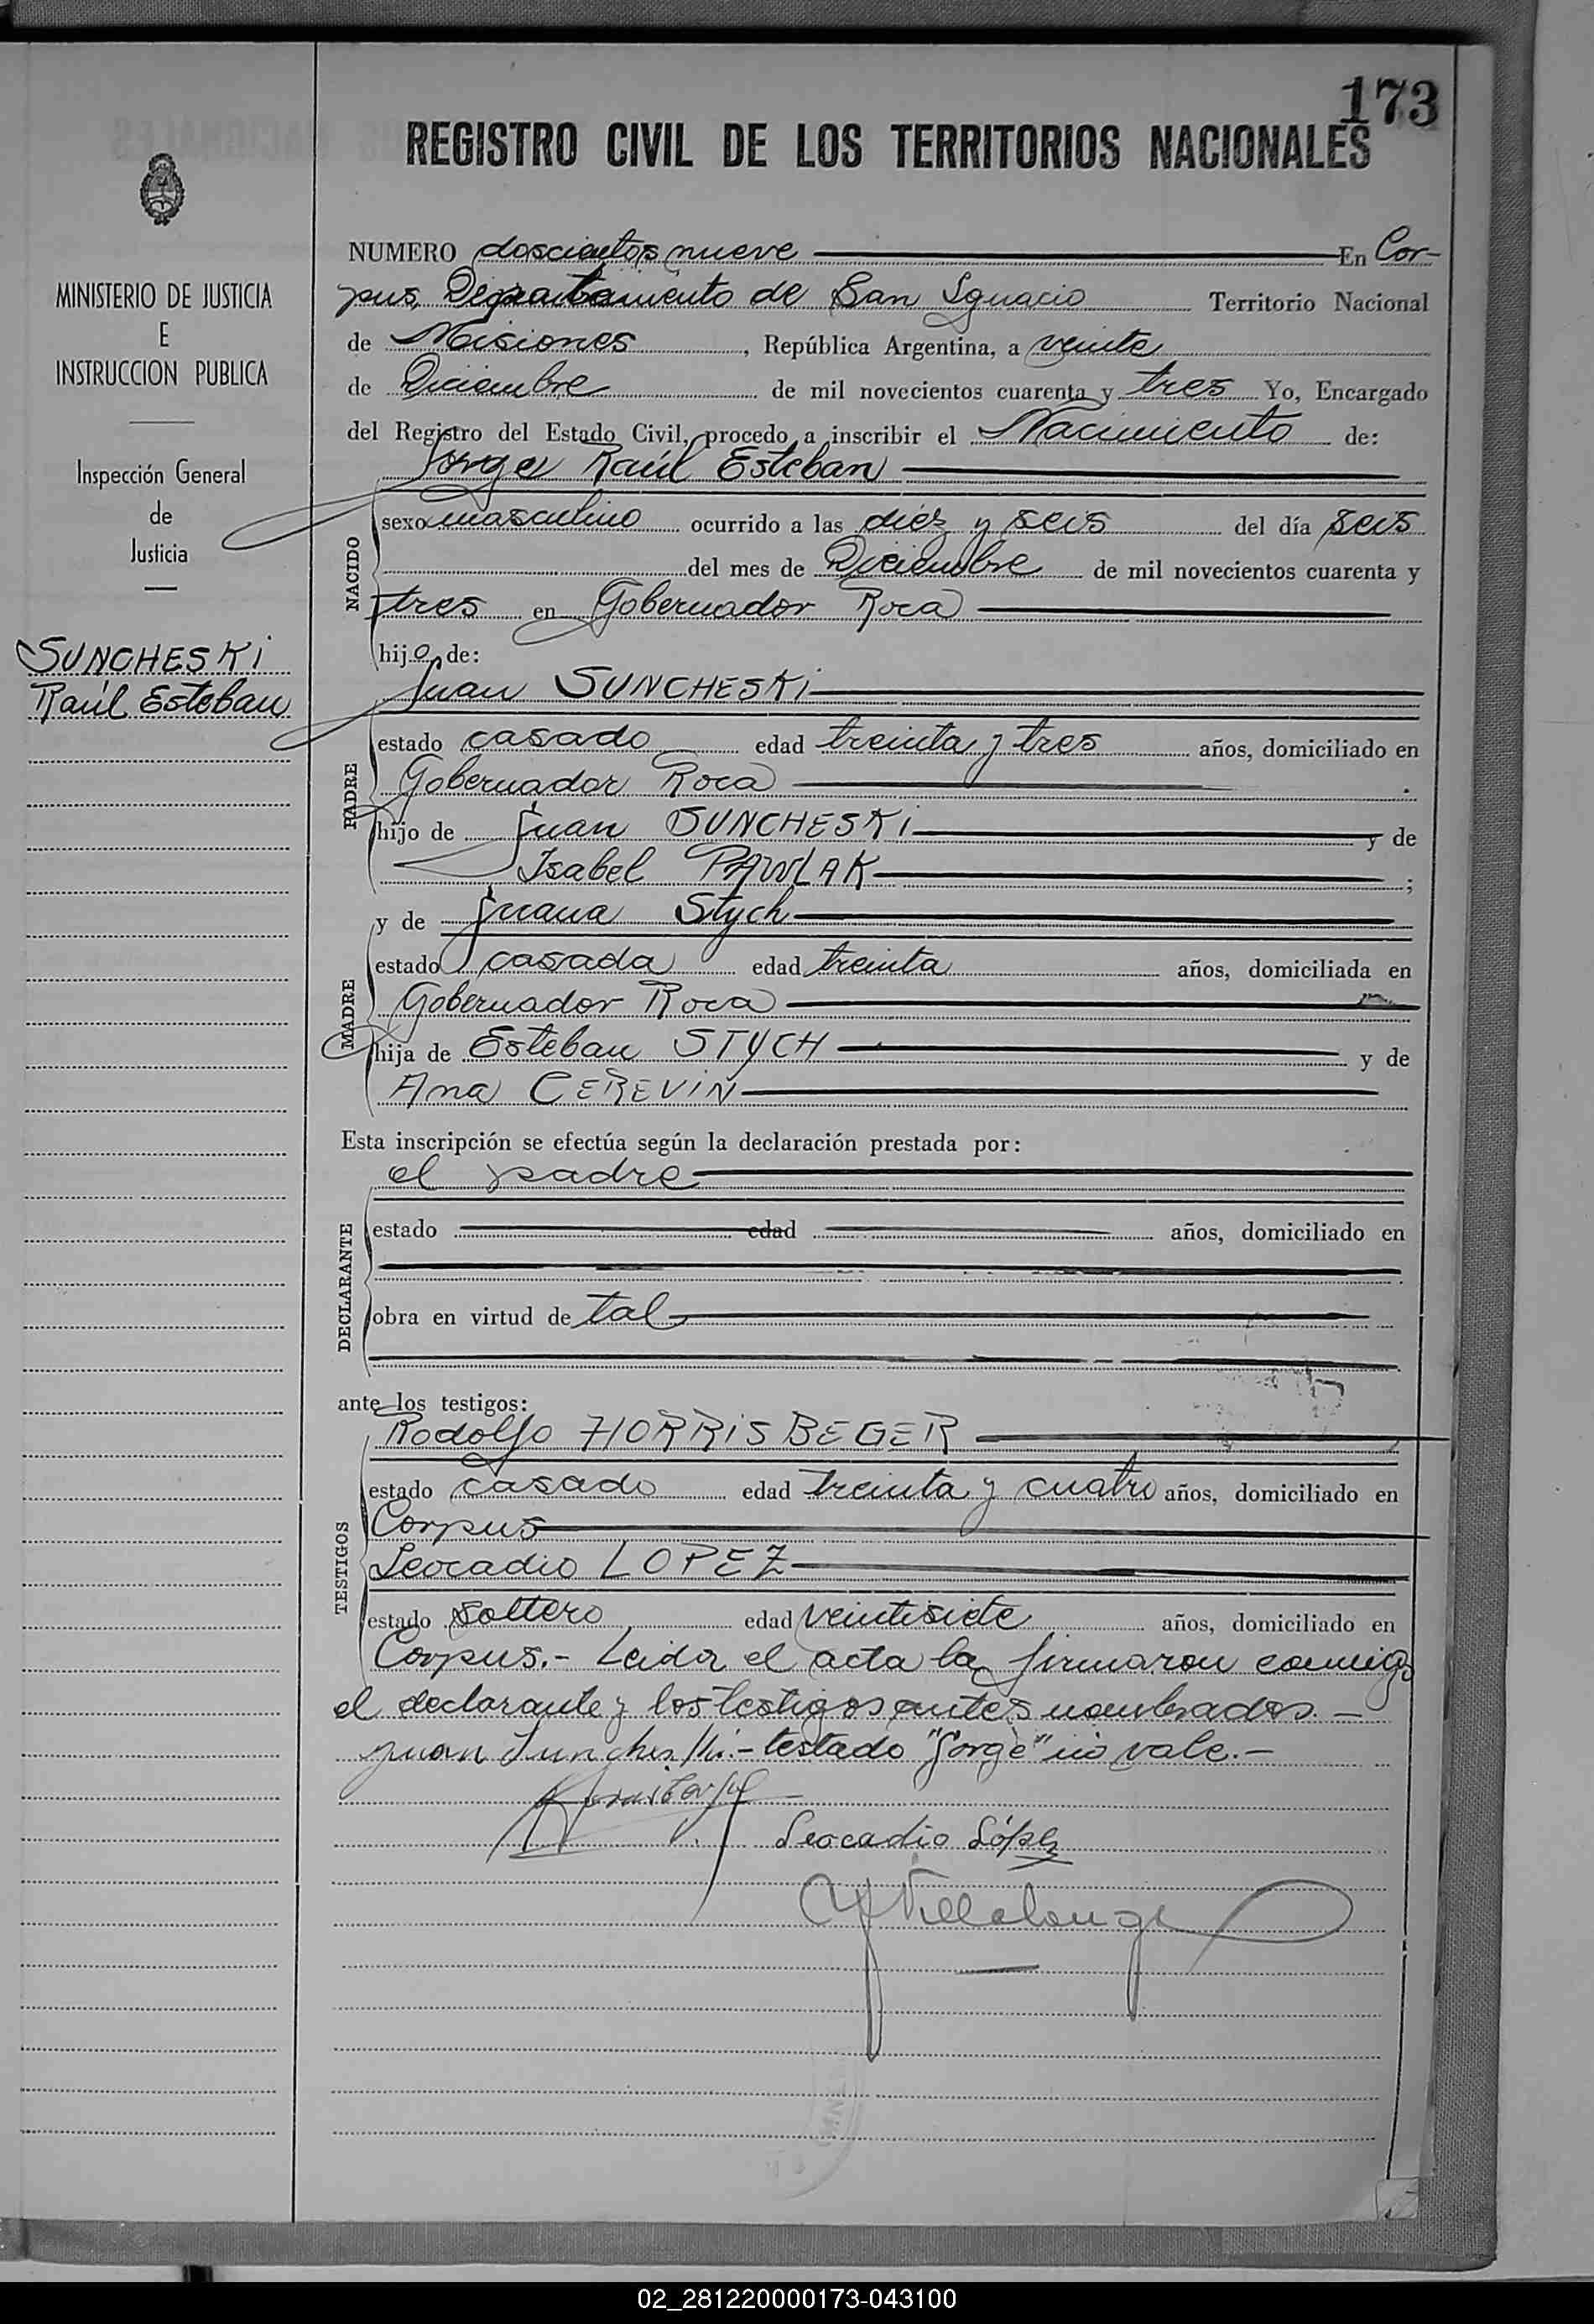 173
REGISTRO CIVIL DE LOS TERRITORIOS NACIONALES
MINISTERIO DE JUSTICIA
E
INSTRUCCION PUBLICA
Inspección General
de
Justicia
SUNCHESKi
Raúl Esteban
NUMERO doscientos nueve En Cor-
pus, Departamento de San Ignacio Territorio Nacional
de Misiones, República Argentina, a veinte
de Diciembre de mil novecientos cuarenta y tres Yo, Encargado
del Registro del Estado Civil, procedo a inscribir el Nacimiento de:
Jorge Raúl Esteban
NACIDO
sexo masculino ocurrido a las diez y seis del día seis
del mes de Diciembre de mil novecientos cuarenta y
tres en Gobernador Roca
hijo de:
Juan SUNCHESKi
PADRE
estado casado edad treinta y tres años, domiciliado en
Gobernador Roca
hijo de Juan SUNCHESKi y de
Isabel PAWLAK;
y de Juana Stych
MADRE
estado casada edad treinta años, domiciliada en
Gobernador Roca
hija de Esteban STYCH y de
Ana CEREViN
Esta inscripción se efectúa según la declaración prestada por:
el padre
DECLARANTE
estado edad años, domiciliado en
obra en virtud de tal
ante los testigos:
Rodolfo HORRiSBEGER
TESTIGOS
estado casado edad treinta y cuatro años, domiciliado en
Corpus
Leocadio LOPEZ
estado soltero edad veintisiete años, domiciliado en
Corpus.- Leida el acta la firmaron conmigo
el declarante y los testigos antes nombrados.-
Juan Suncheski.- testado "Jorge" no vale.-
Leocadio López
Villalonga
02_281220000173-043100